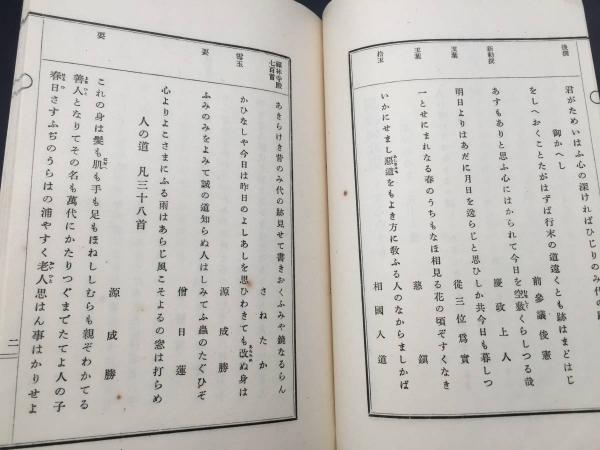 後撰
君がためいはふ心の深ければひじりのみ代の跡
御かへし
をしへおくことたがはずば行末の道遠くとも跡はまどはじ
前參議俊憲
新勅撰
あすもありと思ふ心にはかられて今日を空敷くらしつる哉
慶政上人
玉葉
明日よりはあだに月日を送らじと思ひしか共今日も暮しつ
從三位爲實
玉葉
一とせにまれなる春のうちもなほ相見る花の頃ぞすくなき
慈鎭
拾玉
いかにせまし惡道をもよき方に敎ふる人のなからましかば
相國入道
禪林寺殿七百首
あきらけき昔のみ代の跡見せて書きおくふみや鏡なるらん
さねたか
雪玉
かひなしや今日は昨日のよしあしを思ひわきても改ぬ身は
源成勝
要
ふみのみをよみて誠の道知らぬ人はしみてふ蟲のたぐひぞ
僧日蓮
心よりよこさまにふる雨はあらじ風こそよるの窓は打らめ
人の道 凡三十八首
源成勝
要
これの身は髮も肌も手も足もほねししむらも親ぞわかてる
善人となりてその名も萬代にかたりつぐまでたてよ人の子
春日さすふぢのうらはの浦やすく老人思はん事はかりせよ
二